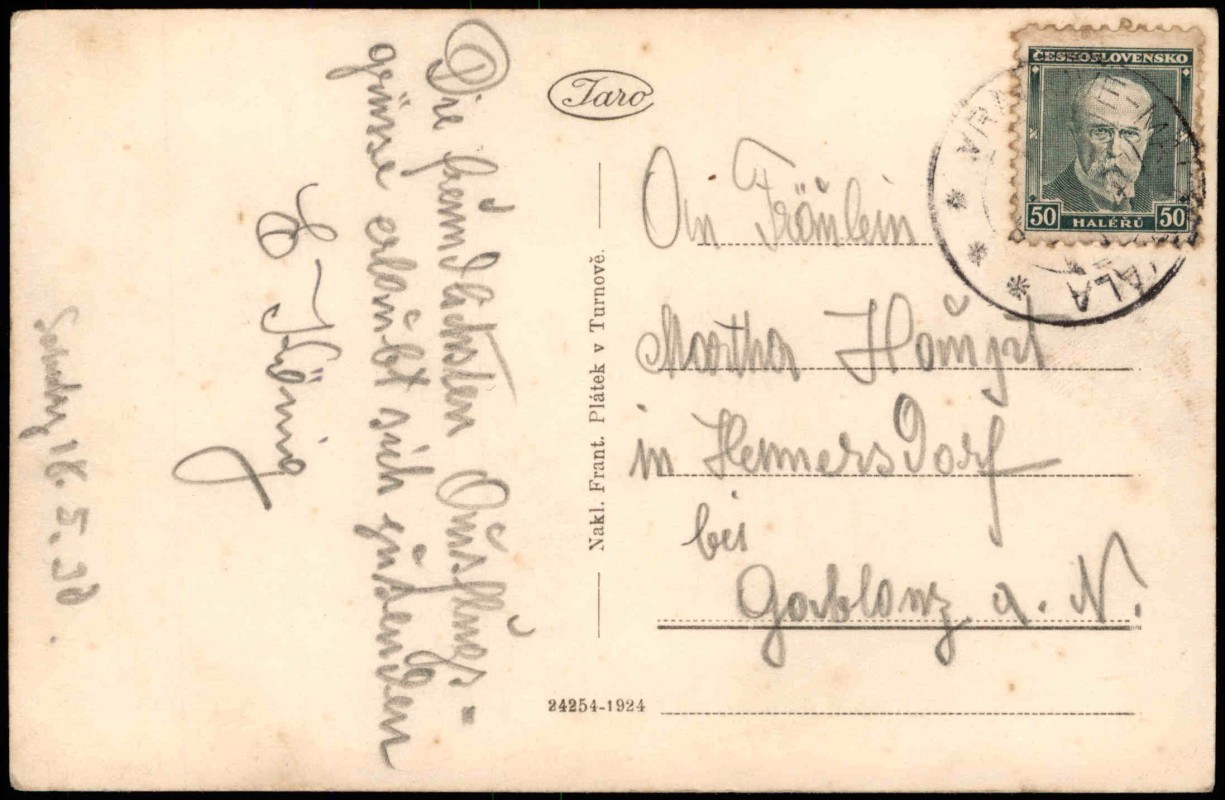 Die freundlichsten Ausflugs=
grüsse erlaubt sich zu senden
E. König
18. 5. 30.
Jaro
Nakl. Frant. Plátek v Turnově.
24254-1924
ČESKOSLOVENSKO
50 HALÉŘŮ 50
VRANOV SKÁLA
An Fräulein
Martha Haupt
in Hennersdorf
bei
Gablonz a. N.